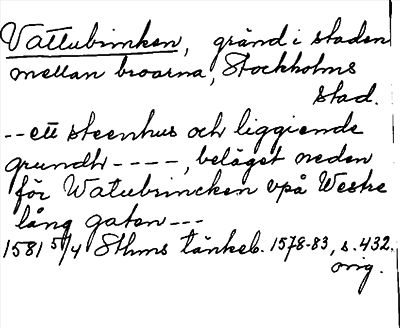 Vattubrinken, gränd i staden
mellan broarna, Stockholms
stad.
-- ett steenhus och liggiende
grundh ----, beläget neden
för Watubrincken vpå Westre
lång gaten ---
1581 5/4 Sthms tänkeb. 1578-83, s. 432.
orig.